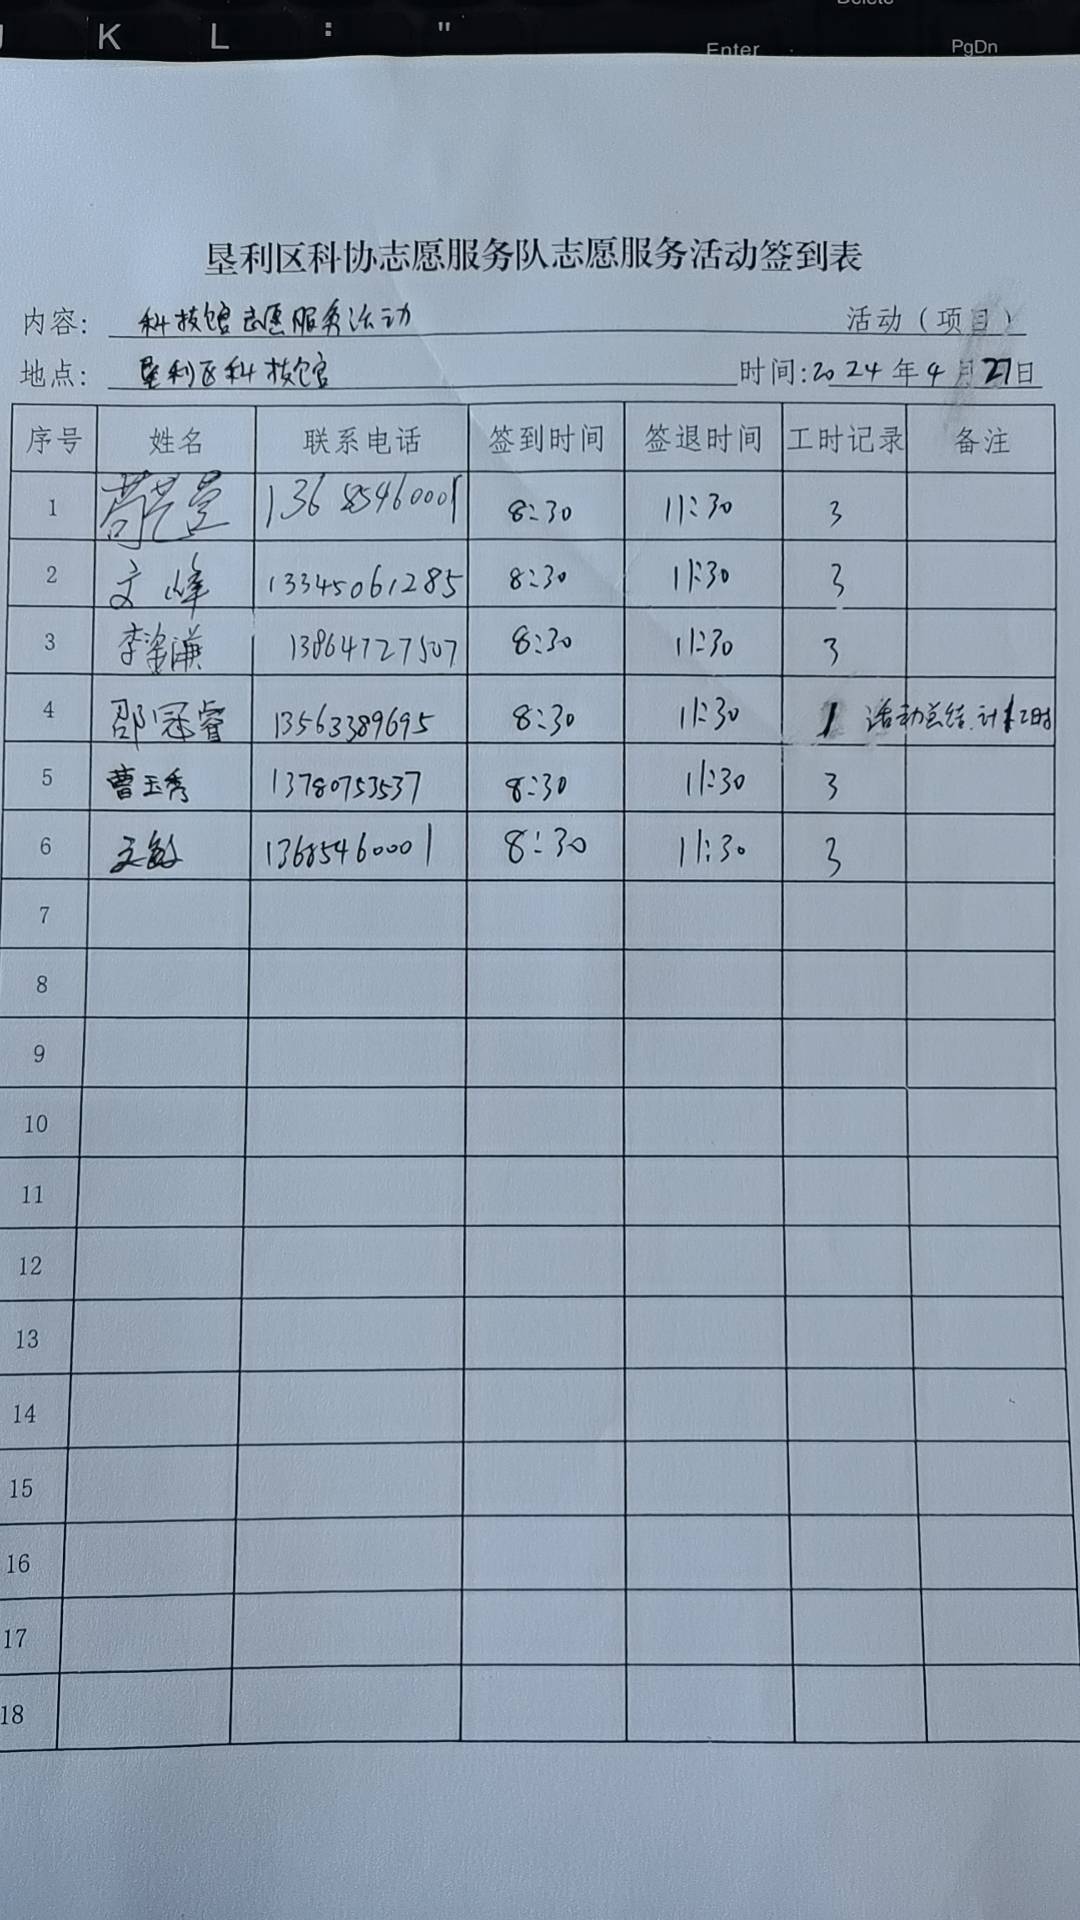 K L : "
Delete
Enter
PgDn
垦利区科协志愿服务队志愿服务活动签到表
内容: 科技馆志愿服务活动 活动（项目）
地点: 垦利区科技馆 时间:2024年4月27日
序号 姓名 联系电话 签到时间 签退时间 工时记录 备注
1 13685460001 8:30 11:30 3
2 文峰 13345061285 8:30 11:30 3
3 李鉴谦 13864727507 8:30 11:30 3
4 邵冠睿 13563389695 8:30 11:30 1 活动总结,计1工时
5 曹玉秀 13780753537 8:30 11:30 3
6 文敏 13685460001 8:30 11:30 3
7
8
9
10
11
12
13
14
15
16
17
18